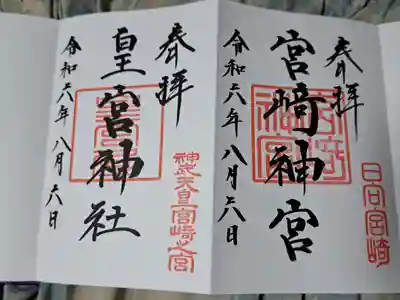 奉拝
宮崎神宮
令和六年八月六日
日向宮崎
奉拝
皇宮神社
令和六年八月六日
神武天皇宮崎之宮